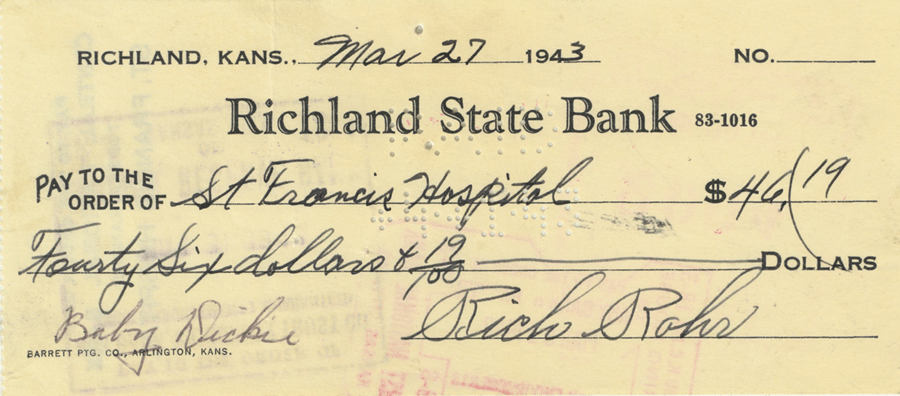 RICHLAND, KANS., Mar 27 1943 NO.
Richland State Bank 83-1016
PAY TO THE
ORDER OF St Francis Hospital $46,19
Fourty Six dollars & 19/100 DOLLARS
Baby Dickie Rich Rohr
BARRETT PTG. CO., ARLINGTON, KANS.